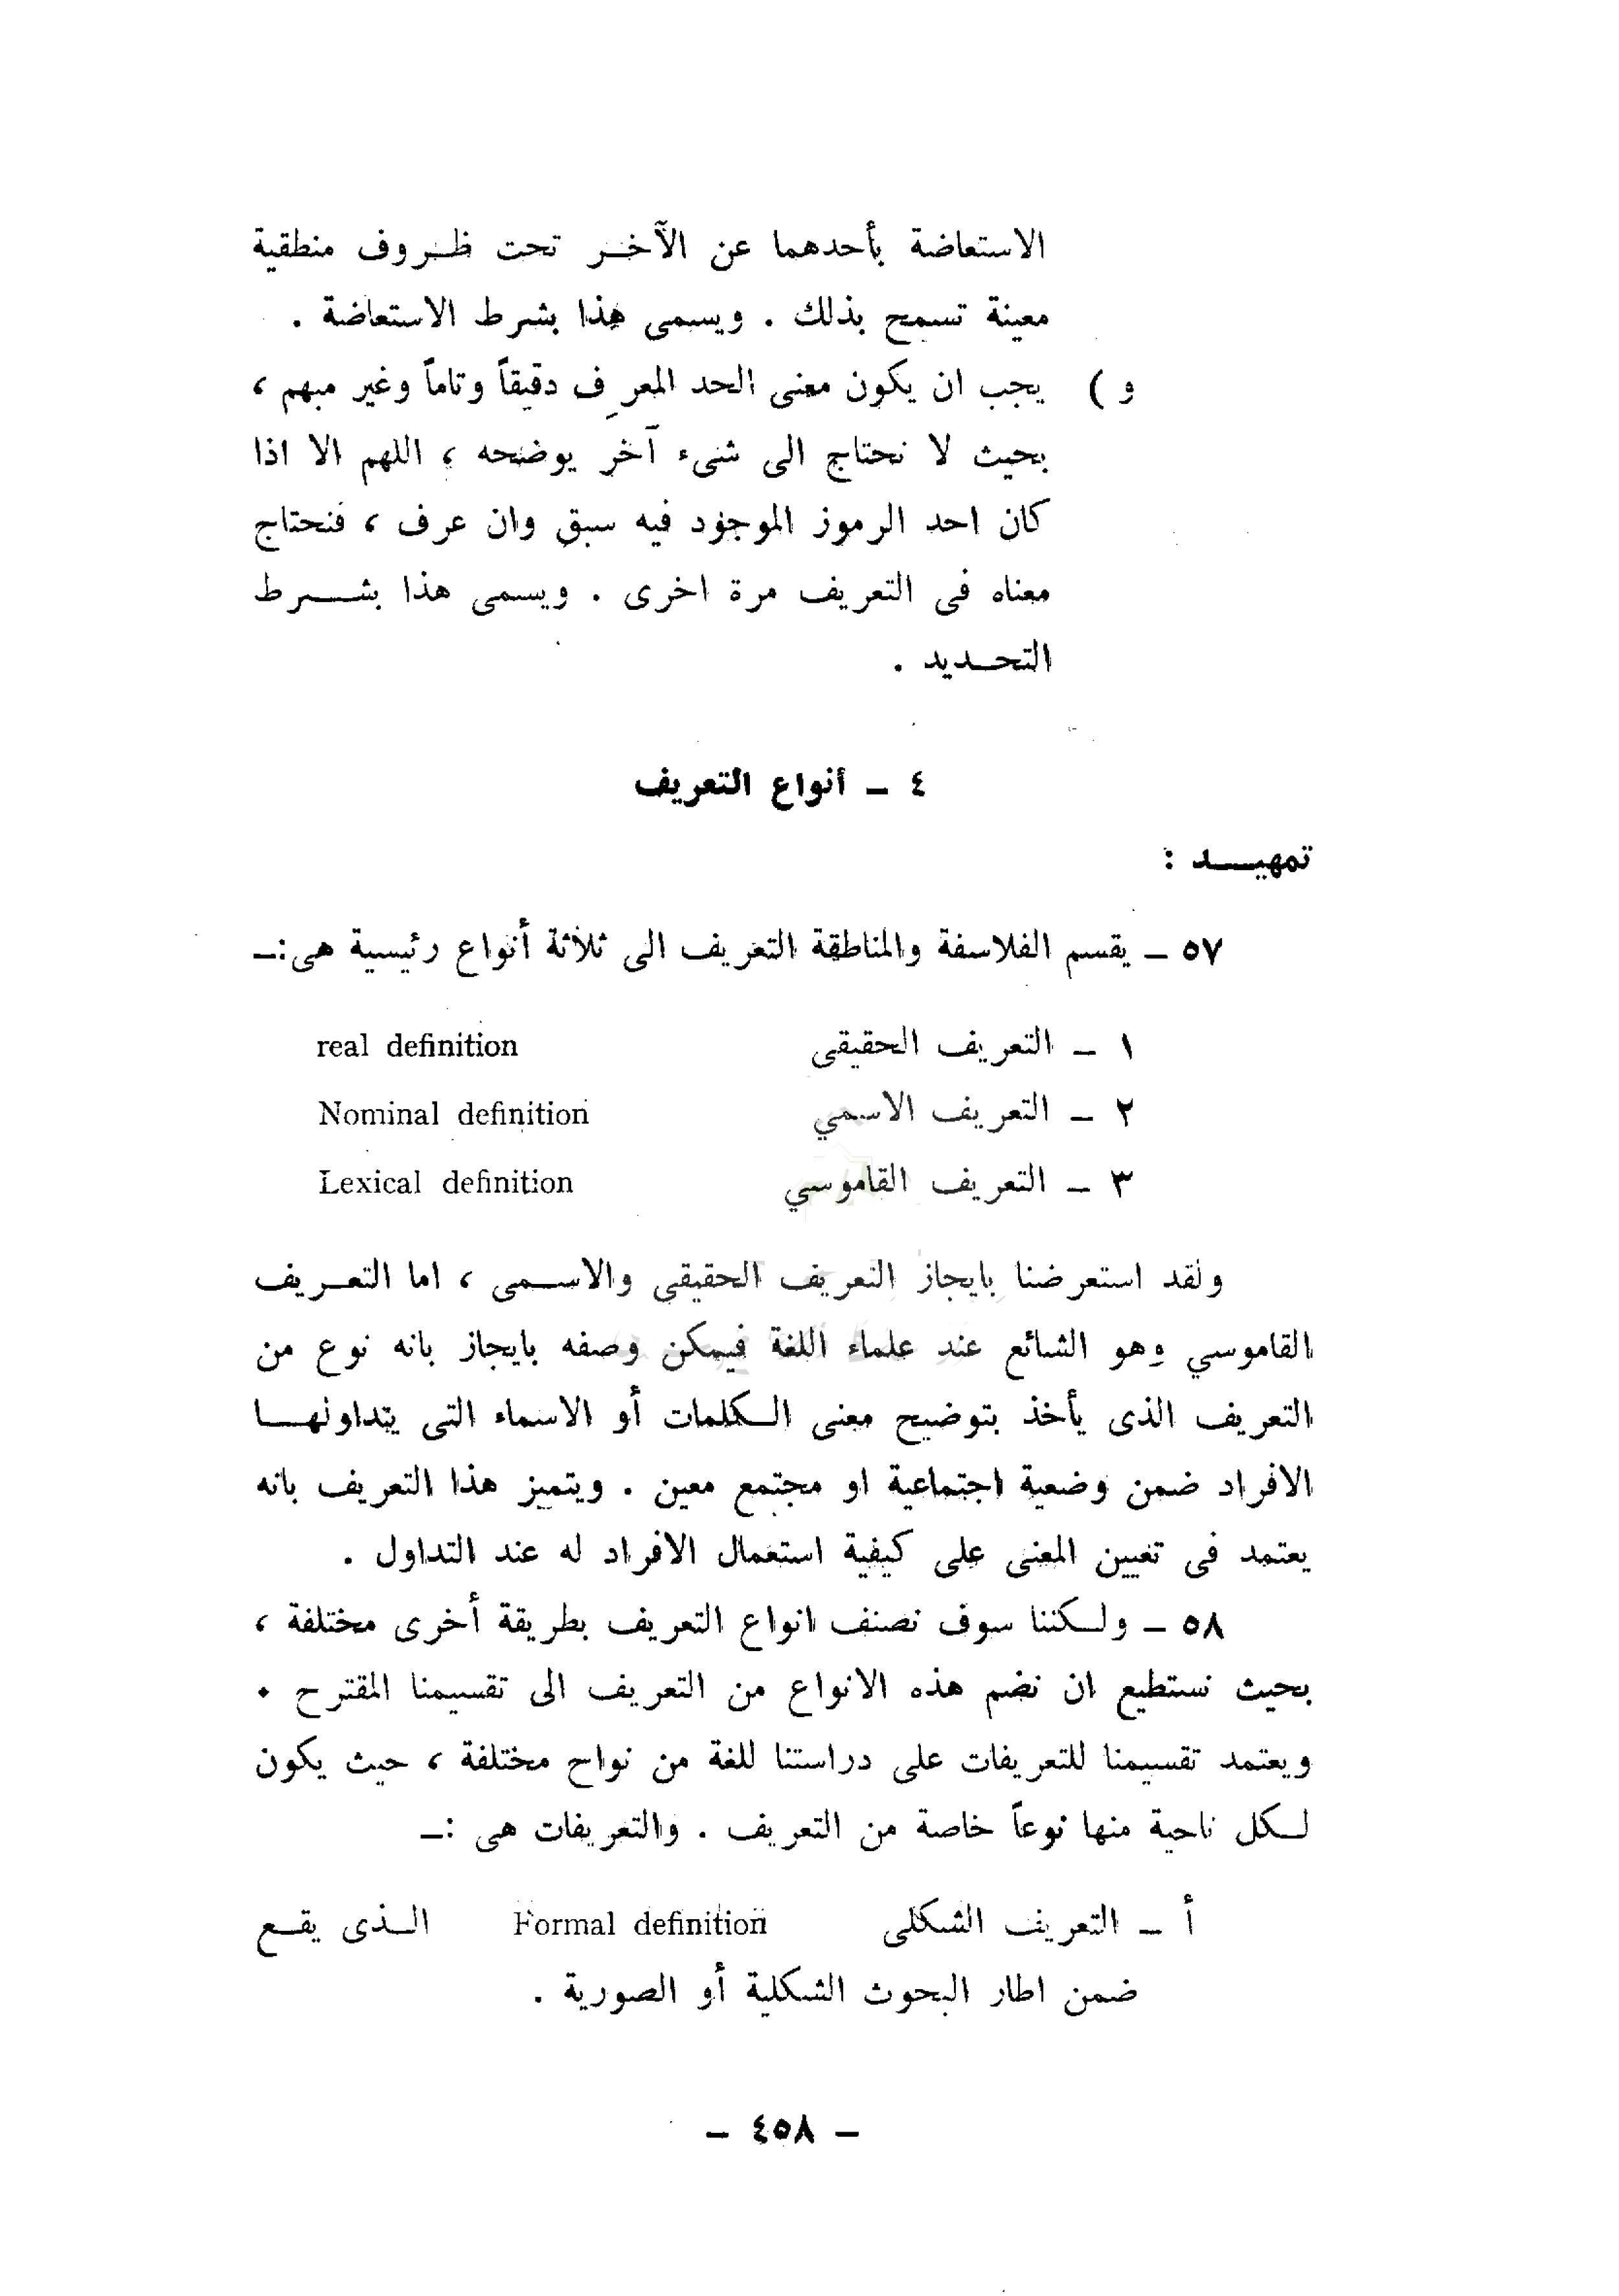 الاستعاضة بأحدهما عن الآخـر تحت ظـروف منطقية
معينة تسمح بذلك . ويسمى هذا بشرط الاستعاضة .
و ) يجب ان يكون معنى الحد المعرِف دقيقاً وتاماً وغير مبهم ،
بحيث لا نحتاج الى شىء آخر يوضحه ، اللهم الا اذا
كان احد الرموز الموجود فيه سبق وان عرف ، فنحتاج
معناه فى التعريف مرة اخرى . ويسمى هذا بشـــرط
التحـديد .
٤ ــ أنواع التعريف
تمهيـــد :
٥٧ ــ يقسم الفلاسفة والمناطقة التعريف الى ثلاثة أنواع رئيسية هى:ــ
١ ــ التعريف الحقيقى real definition
٢ ــ التعريف الاسمي Nominal definition
٣ ــ التعريف القاموسي Lexical definition
ولقد استعرضنا بايجاز التعريف الحقيقى والاسـمى ، اما التعـريف
القاموسي وهو الشائع عند علماء اللغة فيمكن وصفه بايجاز بانه نوع من
التعريف الذى يأخذ بتوضيح معنى الـكلمات أو الاسماء التى يتداولهـا
الافراد ضمن وضعية اجتماعية او مجتمع معين . ويتميز هذا التعريف بانه
يعتمد فى تعيين المعنى على كيفية استعمال الافراد له عند التداول .
٥٨ ــ ولـكننا سوف نصنف انواع التعريف بطريقة أخرى مختلفة ،
بحيث نستطيع ان نضم هذه الانواع من التعريف الى تقسيمنا المقترح .
ويعتمد تقسيمنا للتعريفات على دراستنا للغة من نواح مختلفة ، حيث يكون
لـكل ناحية منها نوعاً خاصة من التعريف . والتعريفات هى :ــ
أ ــ التعريف الشكلى Formal definition الـذى يقـع
ضمن اطار البحوث الشكلية أو الصورية .
ــ ٤٥٨ ــ